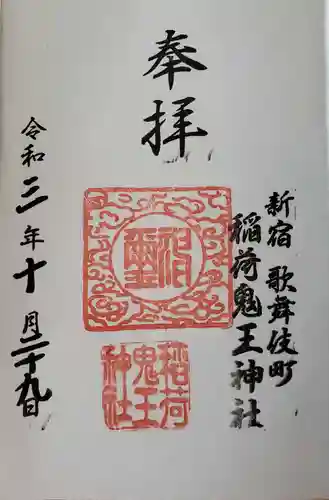 奉拝
新宿 歌舞伎町
稲荷鬼王神社
稲荷
鬼王
神社
令和三年十月二十九日